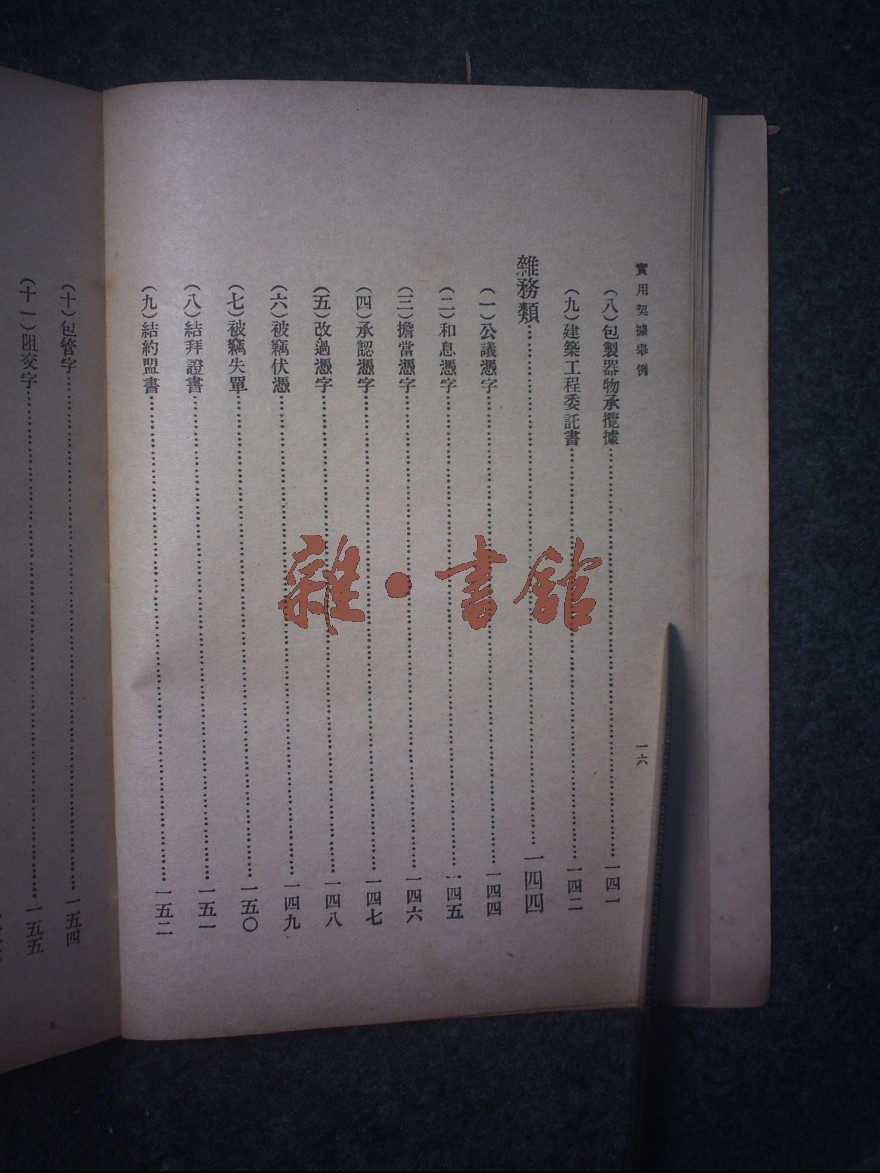 實用契據舉例
一六
（八）包製器物承攬據……一四一
（九）建築工程委託書……一四二
雜務類……一四四
（一）公議憑字……一四四
（二）和息憑字……一四五
（三）擔當憑字……一四六
（四）承認憑字……一四七
（五）改過憑字……一四八
（六）被竊伏憑……一四九
（七）被竊失單……一五〇
（八）結拜證書……一五一
（九）結約盟書……一五二
（十）包管字……一五四
（十一）阻交字……一五五
雜·書館